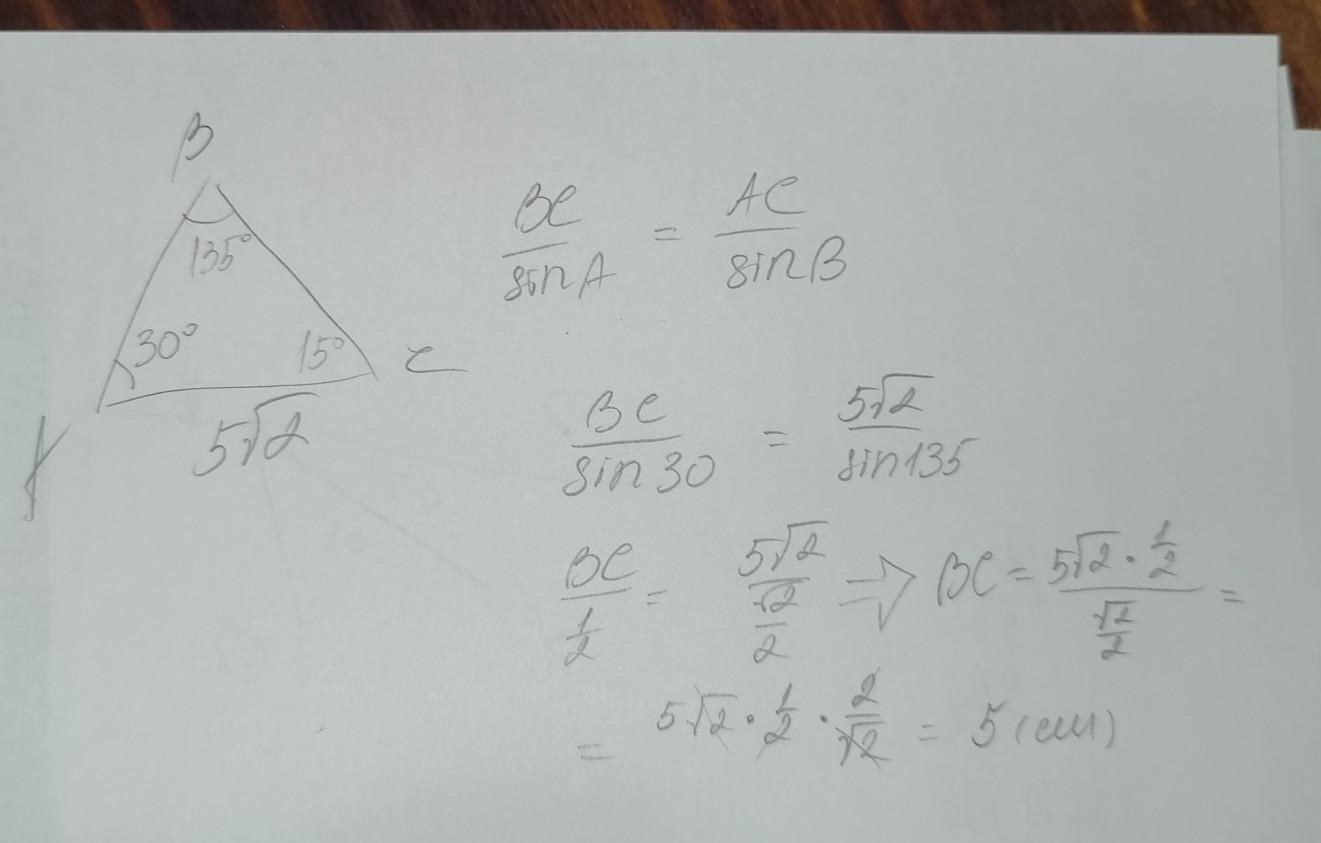 B
135°
30°
15°
C
A
5√2
BC/sinA = AC/sinB
BC/sin30 = 5√2/sin135
BC/(1/2) = 5√2/(√2/2) ⇒ BC = (5√2 · 1/2)/(√2/2) =
= 5√2 · 1/2 · 2/√2 = 5 (см)